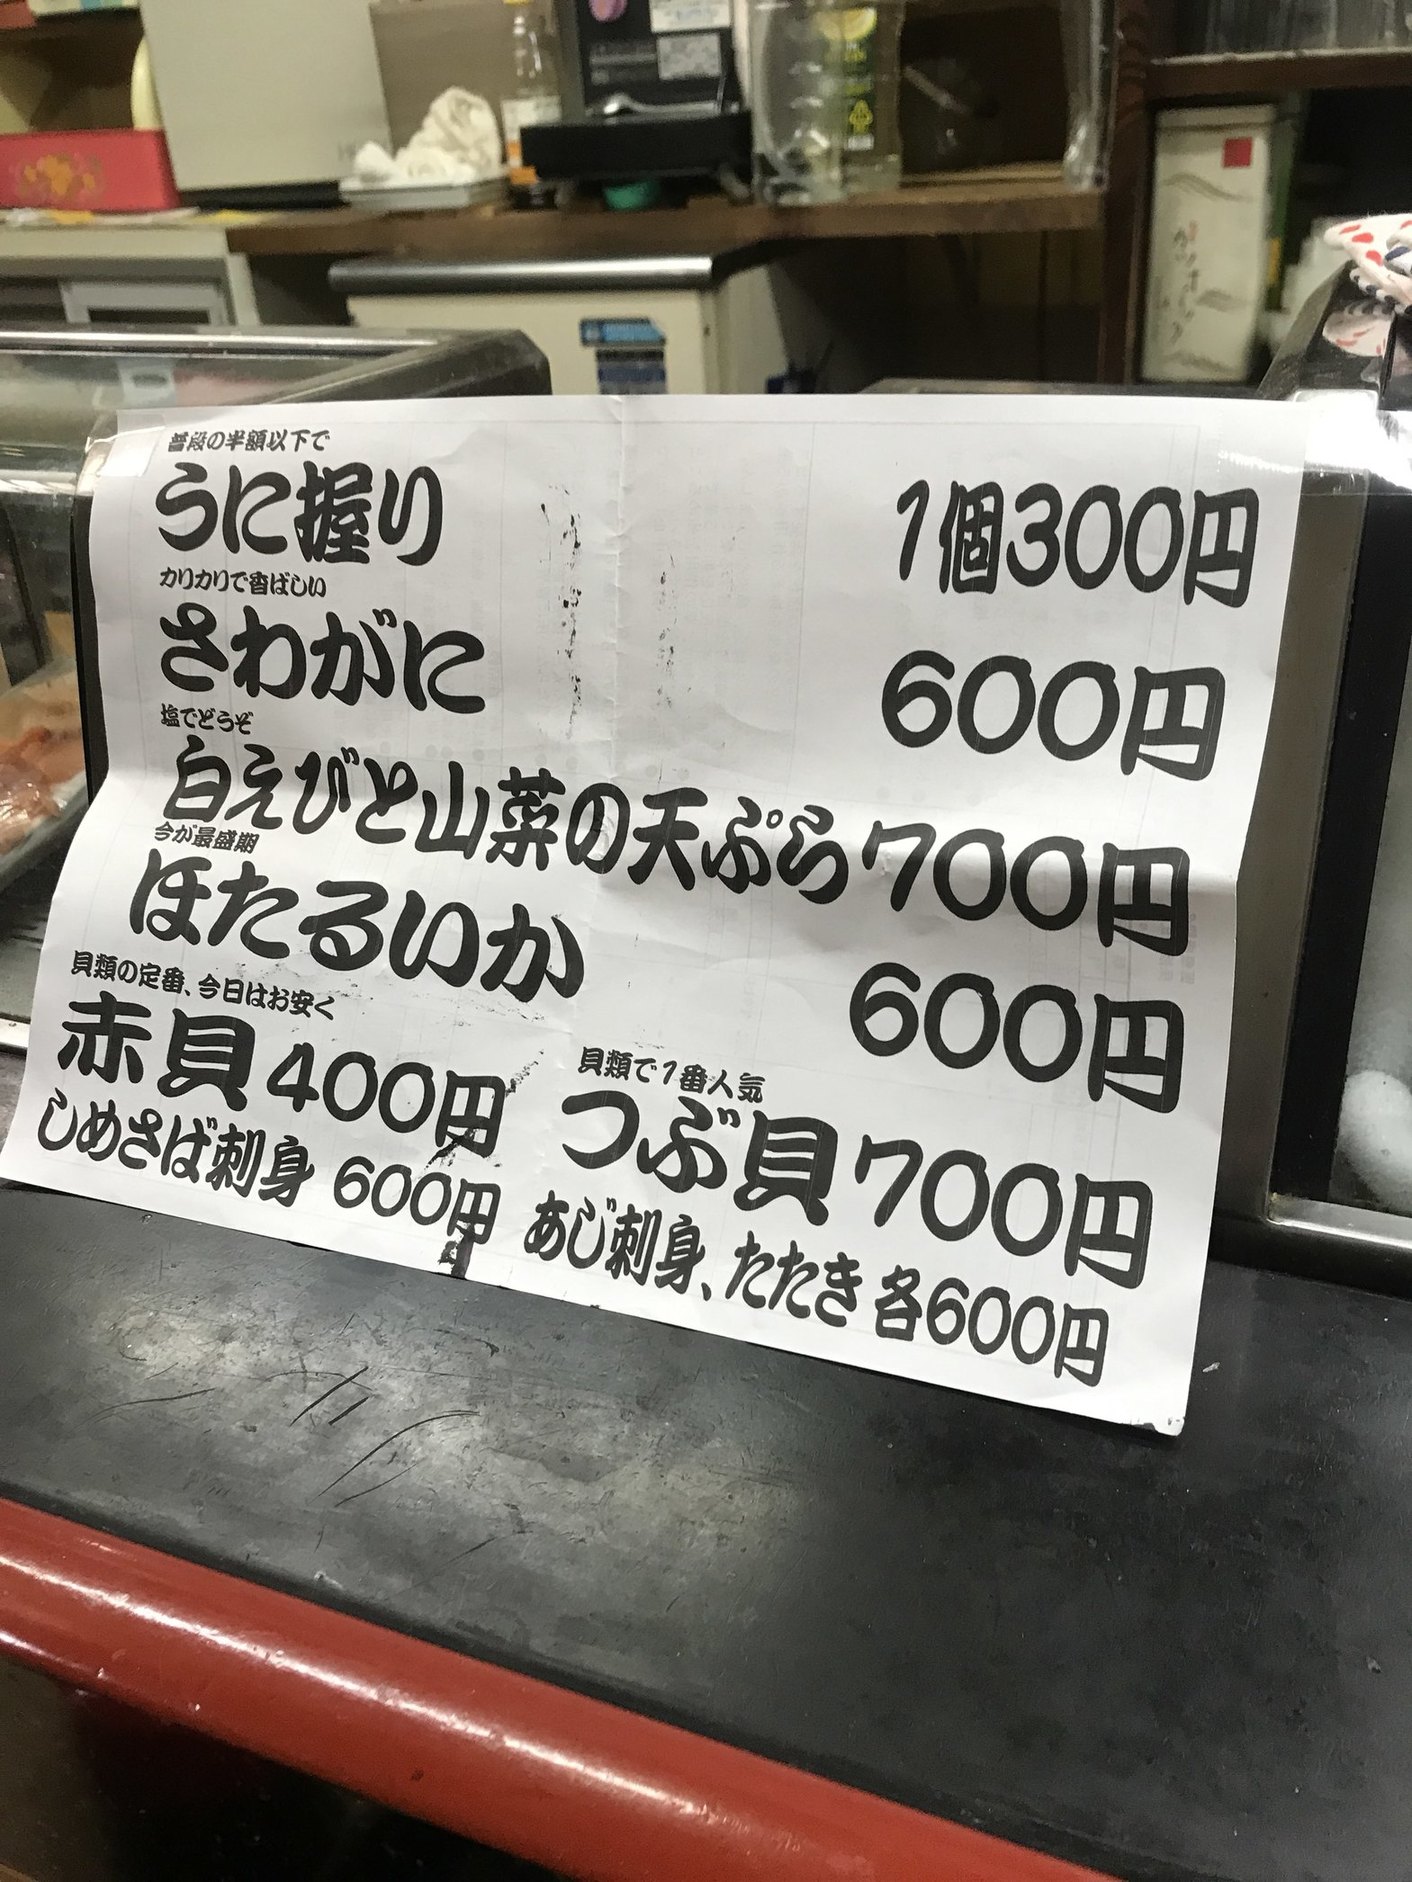 普段の半額以下で
うに握り 1個300円
カリカリで香ばしい
さわがに 600円
塩でどうぞ
白えびと山菜の天ぷら700円
今が最盛期
ほたるいか 600円
貝類の定番、今日はお安く
赤貝400円
貝類で1番人気
つぶ貝700円
しめさば刺身 600円
あじ刺身、たたき 各600円